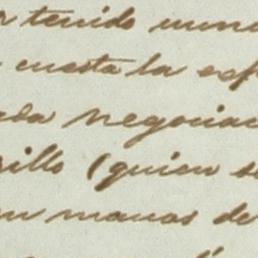 r tenido
cuesta la
negocia
rillo (quien s
en manos de